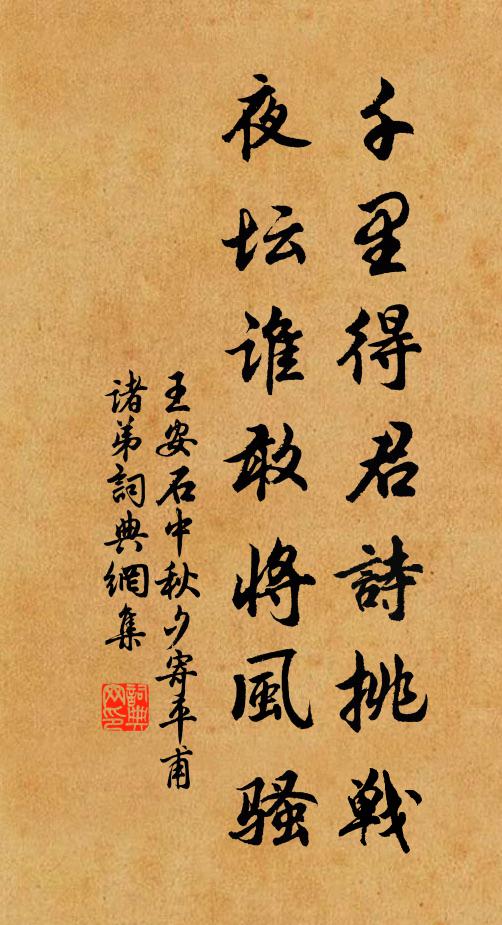 千里得君詩挑戰
夜坛谁敢將風骚
王安石中秋夕寄平甫
诸弟詞典網集
詞典网印